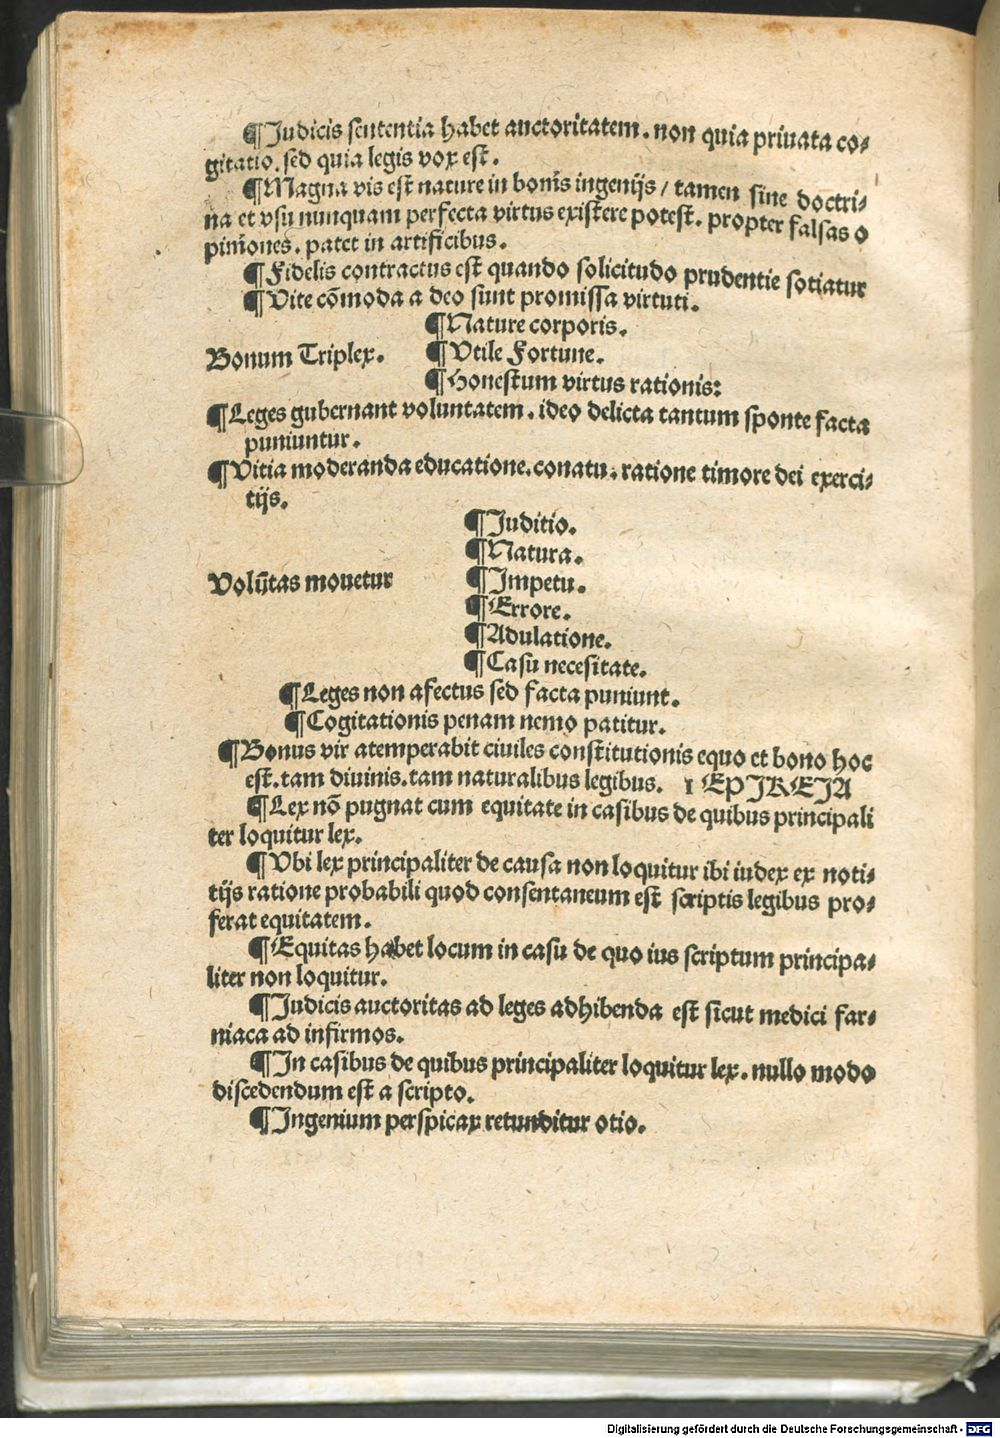 ¶Judicis sententia habet auctoritatem. non quia priuata co⸗
gitatio. sed quia legis vox est.
¶Magna vis est nature in bonis ingenijs / tamen sine doctri⸗
na et vsu nunquam perfecta virtus existere potest. propter falsas o
piniones. patet in artificibus.
¶Fidelis contractus est quando solicitudo prudentie sotiatur
¶Vite cōmoda a deo sunt promissa virtuti.
¶Nature corporis.
Bonum Triplex. ¶Vtile Fortune.
¶Honestum virtus rationis:
¶Leges gubernant voluntatem. ideo delicta tantum sponte facta
puniuntur.
¶Vitia moderanda educatione. conatu. ratione timore dei exerci⸗
tijs.
¶Juditio.
¶Natura.
Volūtas mouetur ¶Impetu.
¶Errore.
¶Adulatione.
¶Casu necesitate.
¶Leges non afectus sed facta puniunt.
¶Cogitationis penam nemo patitur.
¶Bonus vir atemperabit ciuiles constitutionis equo et bono hoc
est. tam diuinis. tam naturalibus legibus. ı EPJKEJA
¶Lex nō pugnat cum equitate in casibus de quibus principali
ter loquitur lex.
¶Vbi lex principaliter de causa non loquitur ibi iudex ex noti⸗
tijs ratione probabili quod consentaneum est scriptis legibus pro⸗
ferat equitatem.
¶Equitas habet locum in casu de quo ius scriptum principa⸗
liter non loquitur.
¶Judicis auctoritas ad leges adhibenda est sicut medici far⸗
niaca ad infirmos.
¶In casibus de quibus principaliter loquitur lex. nullo modo
discedendum est a scripto.
¶Ingenium perspicax retunditur otio.
Digitalisierung gefördert durch die Deutsche Forschungsgemeinschaft - DFG